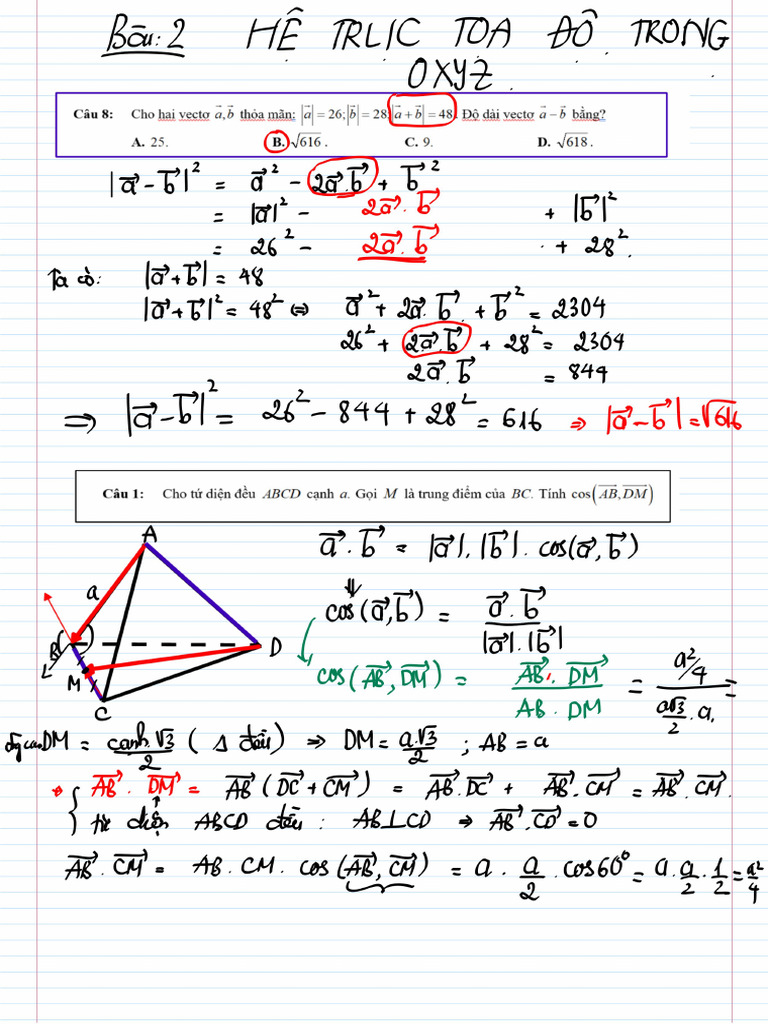 Bài: 2 HỆ TRỤC TOẠ ĐỘ TRONG
OXYZ.
Câu 8: Cho hai vectơ a⃗, b⃗ thỏa mãn: |a⃗| = 26; |b⃗| = 28; |a⃗ + b⃗| = 48. Độ dài vectơ a⃗ − b⃗ bằng?
A. 25. B. √616. C. 9. D. √618.
|a⃗ − b⃗|² = a⃗² − 2a⃗.b⃗ + b⃗²
= |a⃗|² − 2a⃗.b⃗ + |b⃗|²
= 26² − 2a⃗.b⃗ + 28².
Ta có: |a⃗ + b⃗| = 48
|a⃗ + b⃗|² = 48² ⇔ a⃗² + 2a⃗.b⃗ + b⃗² = 2304
26² + 2a⃗.b⃗ + 28² = 2304
2a⃗.b⃗ = 844
⇒ |a⃗ − b⃗|² = 26² − 844 + 28² = 616 ⇒ |a⃗ − b⃗| = √616
Câu 1: Cho tứ diện đều ABCD cạnh a. Gọi M là trung điểm của BC. Tính cos(AB⃗, DM⃗)
A
a
B
D
M
C
a⃗.b⃗ = |a⃗|.|b⃗|.cos(a⃗, b⃗)
⇓
cos(a⃗, b⃗) = a⃗.b⃗ / |a⃗|.|b⃗|
cos(AB⃗, DM⃗) = AB⃗.DM⃗ / AB.DM = (a²/4) / (a√3/2 . a) =
DM = cạnh.√3/2 (Δ đều) ⇒ DM = a.√3/2 ; AB = a
AB⃗.DM⃗ = AB⃗(DC⃗ + CM⃗) = AB⃗.DC⃗ + AB⃗.CM⃗ = AB⃗.CM⃗.
tứ diện ABCD đều: AB⊥CD ⇒ AB⃗.CD⃗ = 0
AB⃗.CM⃗ = AB.CM.cos(AB⃗, CM⃗) = a . a/2 . cos60° = a.a/2.1/2 = a²/4